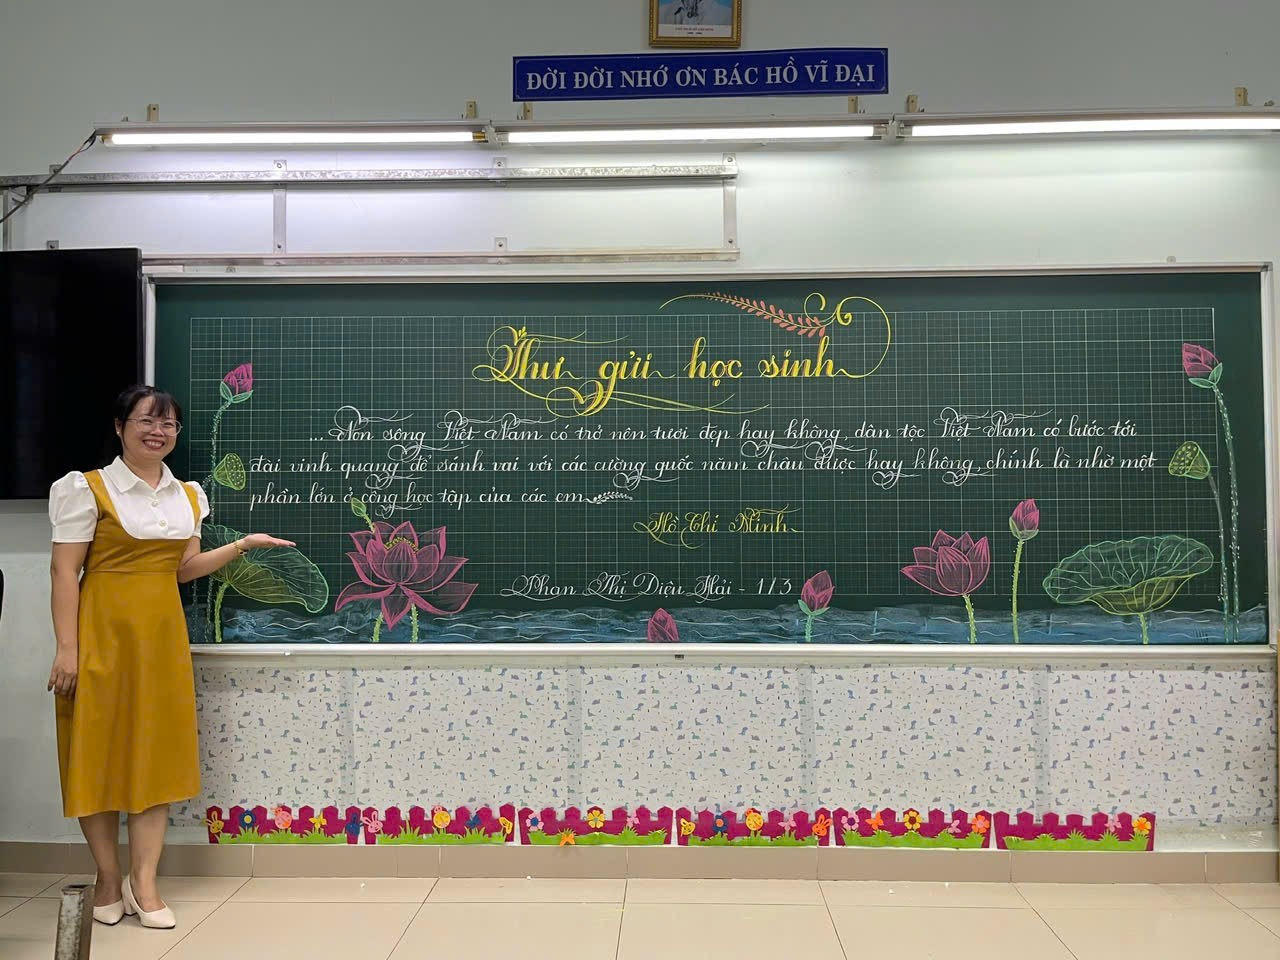 ĐỜI ĐỜI NHỚ ƠN BÁC HỒ VĨ ĐẠI
Thư gửi học sinh
...Non sông Việt Nam có trở nên tươi đẹp hay không, dân tộc Việt Nam có bước tới
đài vinh quang để sánh vai với các cường quốc năm châu được hay không, chính là nhờ một
phần lớn ở công học tập của các em
Hồ Chí Minh
Phan Thị Diệu Hải - 1/3